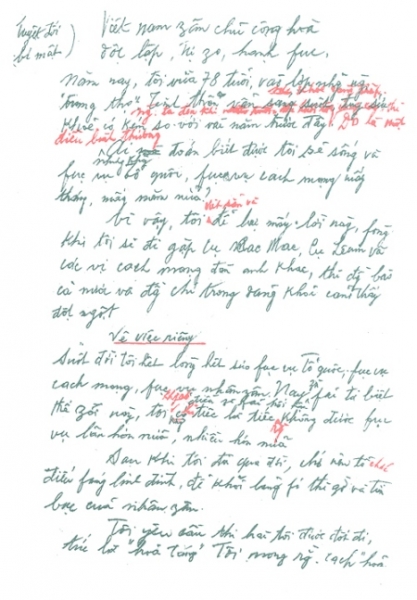 Tuyệt đối
bí mật)
Việt nam zân chủ cộng hoà
độc lập, tự zo, hạnh fúc.
Năm nay, tôi vừa 78 tuổi, vào lớp những người
"trung thọ". Tinh thần vẫn sáng suốt, tuy sức
khoẻ có kém so với vài năm trước đây. Đó là một
điều bình thường
Ai mà đoán biết được tôi sẽ sống và
fục vụ tổ quốc, fục vụ cách mạng mấy
tháng, mấy năm nữa?
Vì vậy, tôi để lại mấy lời này, fòng
khi tôi sẽ đi gặp cụ Các Mác, cụ Lênin và
các vị cách mạng đàn anh khác, thì đồng bào
cả nước và đồng chí trong đảng khỏi cảm thấy
đột ngột
Về việc riêng
Suốt đời tôi hết lòng hết sức fục vụ tổ quốc, fục vụ
cách mạng, fục vụ nhân zân. Nay zù fải từ biệt
thế zới này, tôi không có điều gì fải hối hận, chỉ
tiếc là tiếc không được fục
vụ lâu hơn nữa, nhiều hơn nữa
Sau khi tôi đã qua đời, chớ nên tổ chức
điếu fúng linh đình, để khỏi lãng fí thì zờ và tiền
bạc của nhân zân.
Tôi yêu cầu thi hài tôi được đốt đi,
tức là "hoả táng". Tôi mong rằng cách "hoả